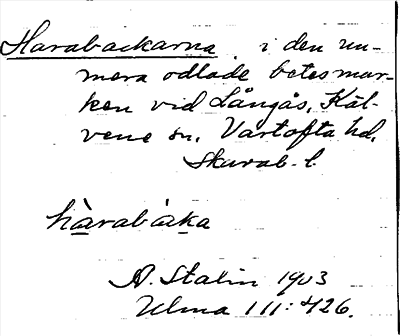 Harabackarna i den nu-
mera odlade betesmar-
ken vid Långås, Käl-
vene sn, Vartofta hd,
Skarab. l.
hàrabàka
A. Stalin 1903
Ulma 111:426.